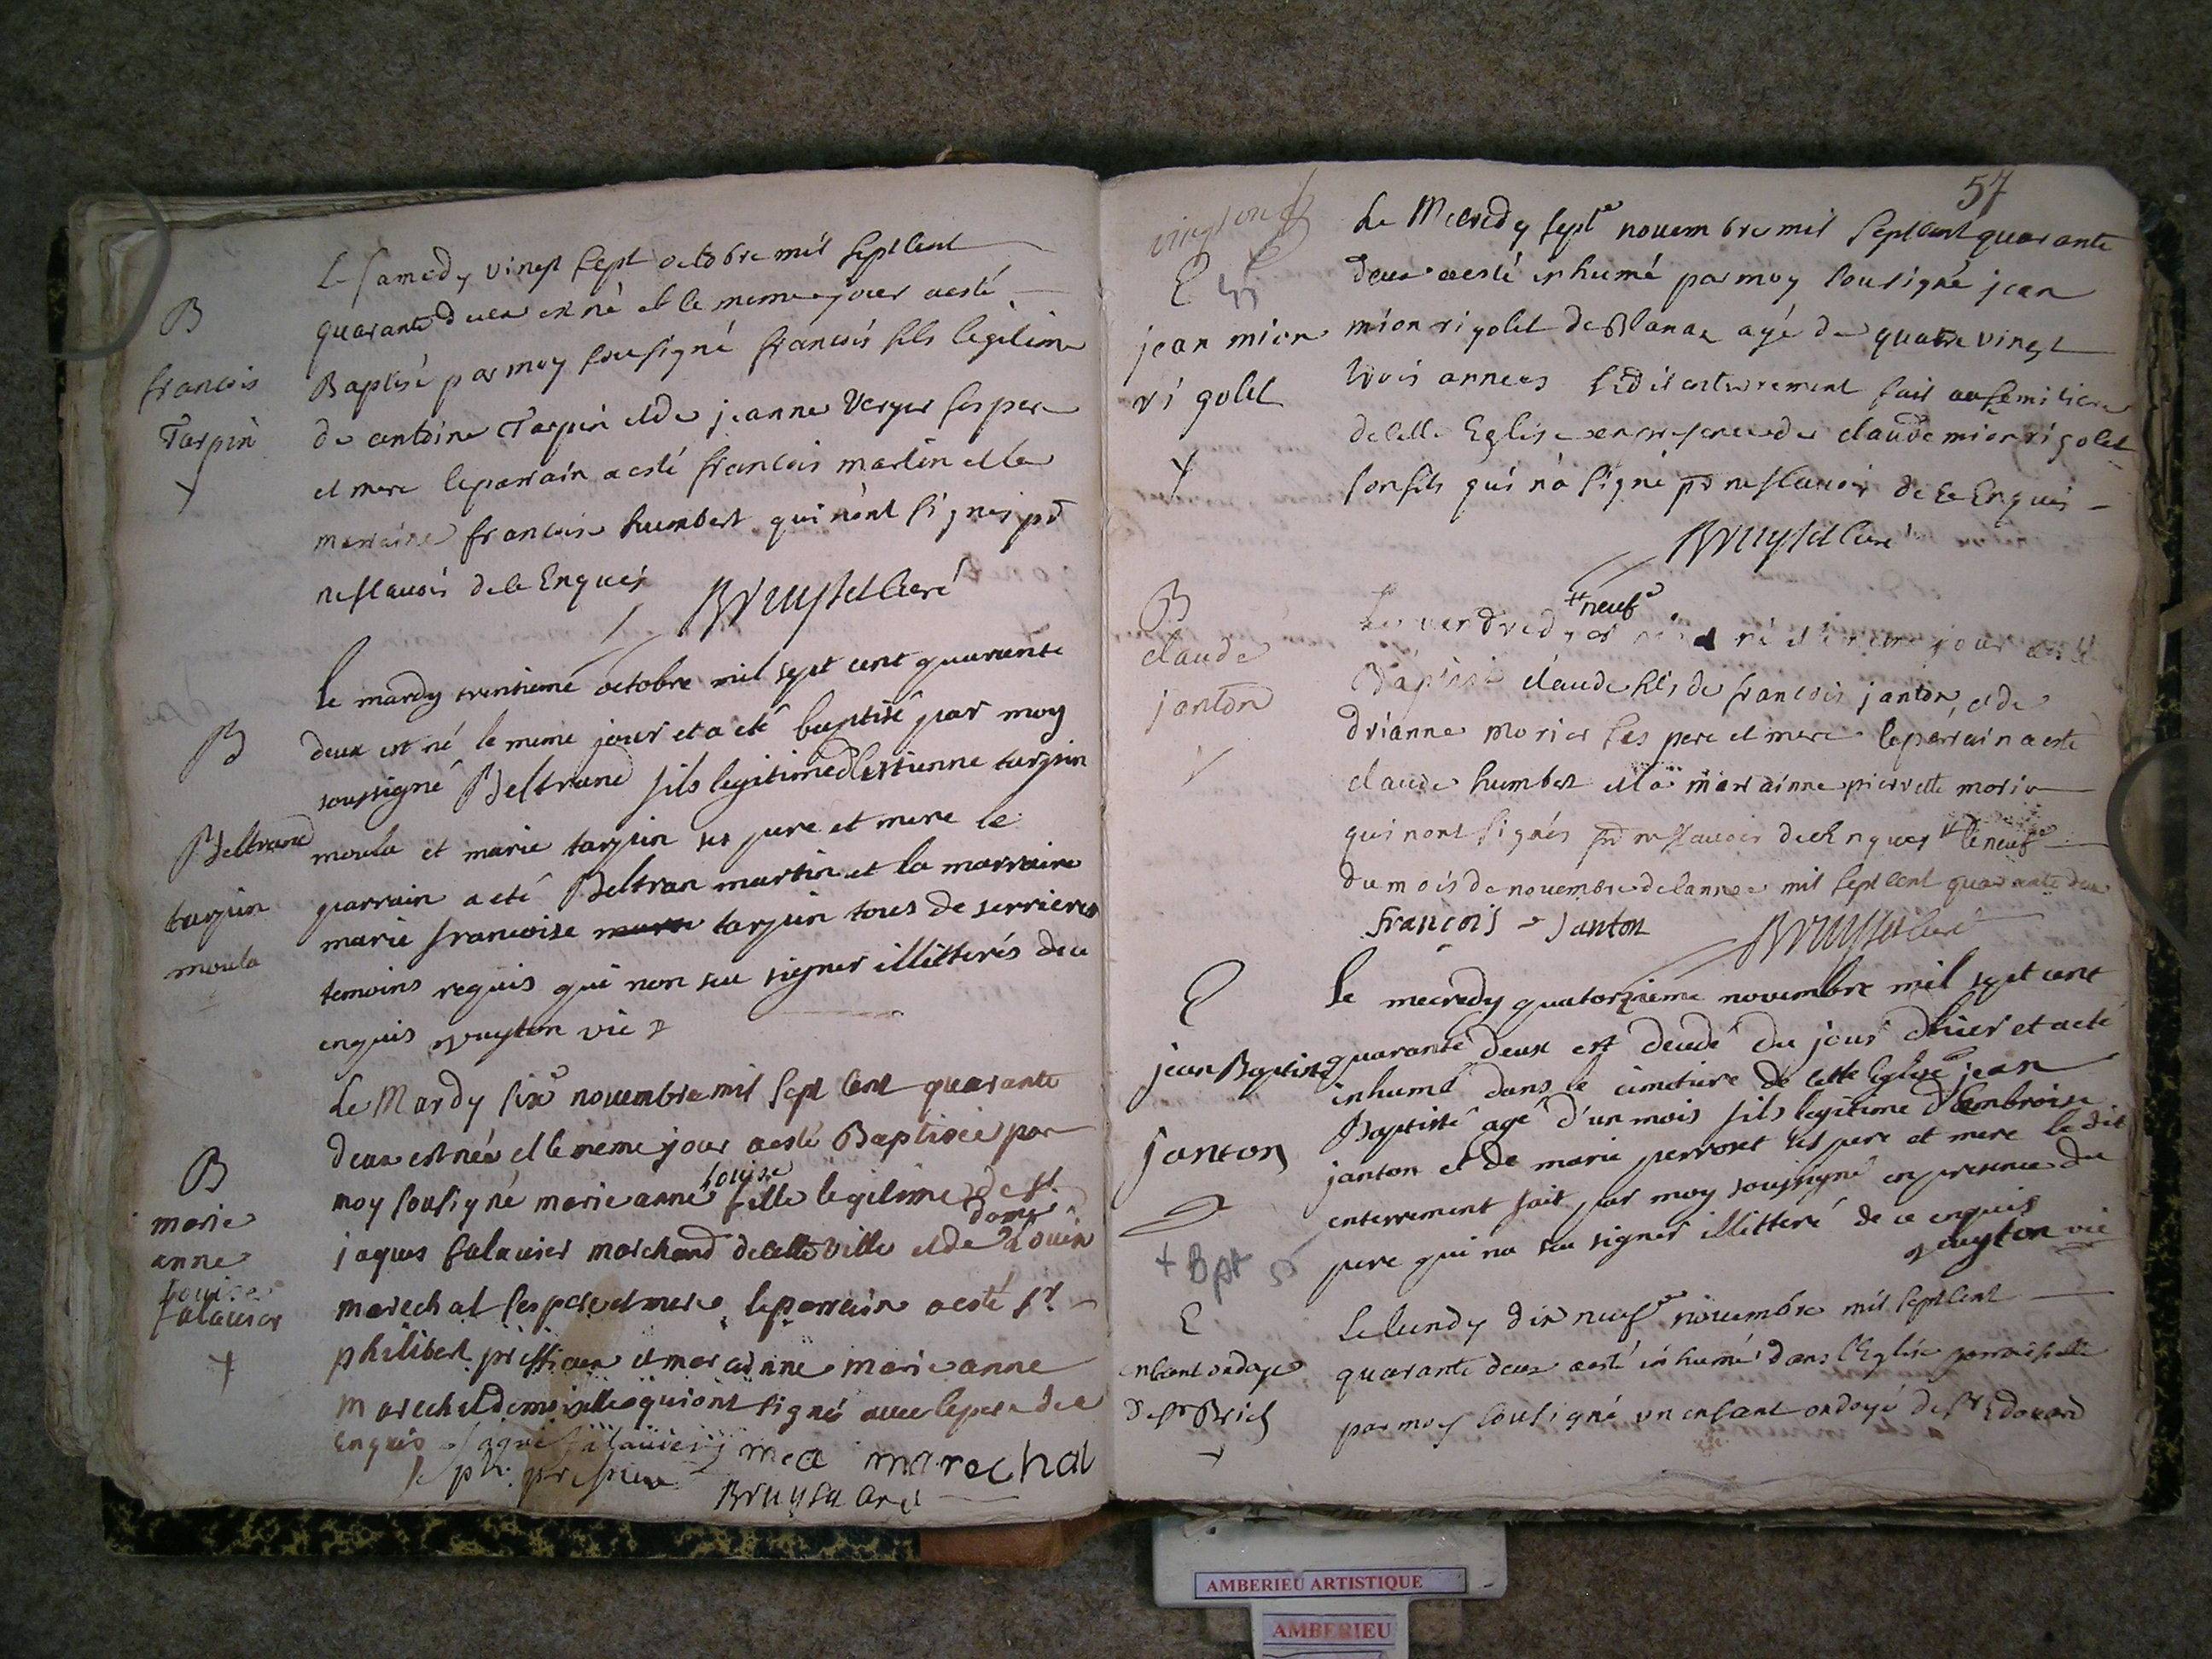 B
francois
Tarpin
Le samedy vingt sept octobre mil sept cent
quarante deux est né et le meme jour a esté
Baptisé par moy sousigné francois fils legitime
de antoine Tarpin et de jeanne Verger ses pere
et mere le parrain a esté francois martin et la
marraine francoise humbert qui n'ont signés pr
ne scavoir de ce Enquis
Bruyset Curé
B
Beltrand
tarpin
moula
le mardy trentieme octobre mil sept cent quarante
deux est né le meme jour et a eté baptisé par moy
soussigné Beltrand fils legitime d'estienne tarpin
moula et marie tarpin ses pere et mere le
parrain a eté Beltran martin et la marraine
marie francoise tarpin tous de serrieres
temoins requis qui non seu signer illitterés de ce
enquis guyton vic
B
marie
anne
Louise
salavier
Le Mardy six novembre mil sept cent quarante
deux est née et le meme jour a esté Baptisée par
Louise
moy sousigné marie anne fille legitime de sr
dame
jaques salavier marchand de cette ville et de Louise
marechal ses pere et mere le parrain a esté sr
philibert et maradnne marie anne
marechal demoiselle qui ont signés avec le pere de ce
enquis jaque salavier mea marechal
Bruyset Curé
57
vingt
E
jean mion
rigolet
Le Mecredy sept novembre mil sept cent quarante
deux a esté inhumé par moy sousigné jean
mion rigolet de Blanaz agé de quatre vingt
trois annees ledit enterrement fait au semitiere
de cette Eglise en presence de claude mion rigolet
son fils qui n'a signé pr ne scavoir de ce Enquis
Bruyset Curé
B
claude
janton
neuf
Le vendredy né et le meme jour a esté
Baptisé claude fils de francois janton, et de
drianne morier ses pere et mere le parrain a esté
claude humber et la marrainne pierrette morier
qui n'ont signés pr ne scavoir de ce Enques le neuf
du mois de novembre de l'annee mil sept cent quarante deux
François Janton Bruyset Curé
E
jean Baptiste
janton
+ Bpt
le mecredy quatorzieme novembre mil sept cent
quarante deux est decedé du jour d'hier et a eté
inhumé dans le cimetiere de cette Eglise jean
Baptiste agé d'un mois fils legitime d'ambroise
janton et de marie perronet ses pere et mere le dit
enterrement fait par moy soussigné en presence du
pere qui na seu signer illitteré de ce enquis
guyton vic
E
enfant ondoye
de sr Briel
Le lundy dix neuf novembre mil sept cent
quarante deux a esté inhumé dans l'Eglise parroissielle
par moy sousigné un enfant ondoyé de sr Edouard
AMBERIEU ARTISTIQUE
AMBERIEU